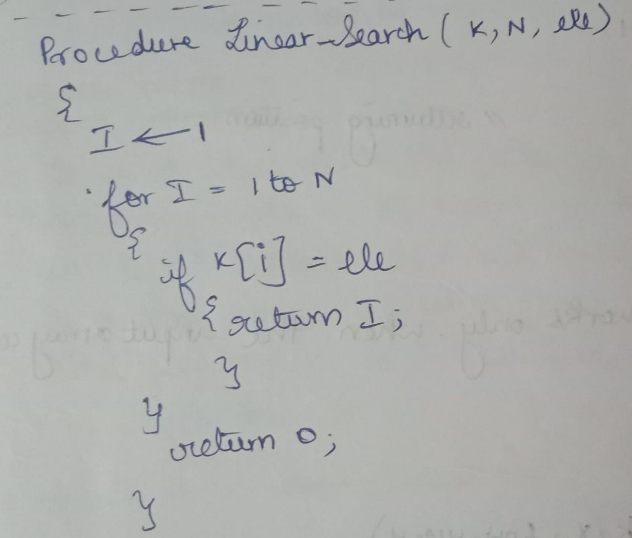 Procedure Linear-Search ( K, N, ele)
{
I ← 1
for I = 1 to N
{
if K[i] = ele
{ return I;
}
}
return 0;
}